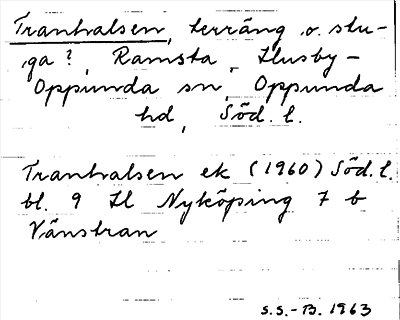 Tranhalsen, terräng o. stu-
ga?, Ramsta, Husby-
Oppunda sn, Oppunda
hd, Söd. l.
Tranhalsen ek (1960) Söd. l.
bl. 9 H Nyköping 7 b
Vänstran
S.S.-B. 1963